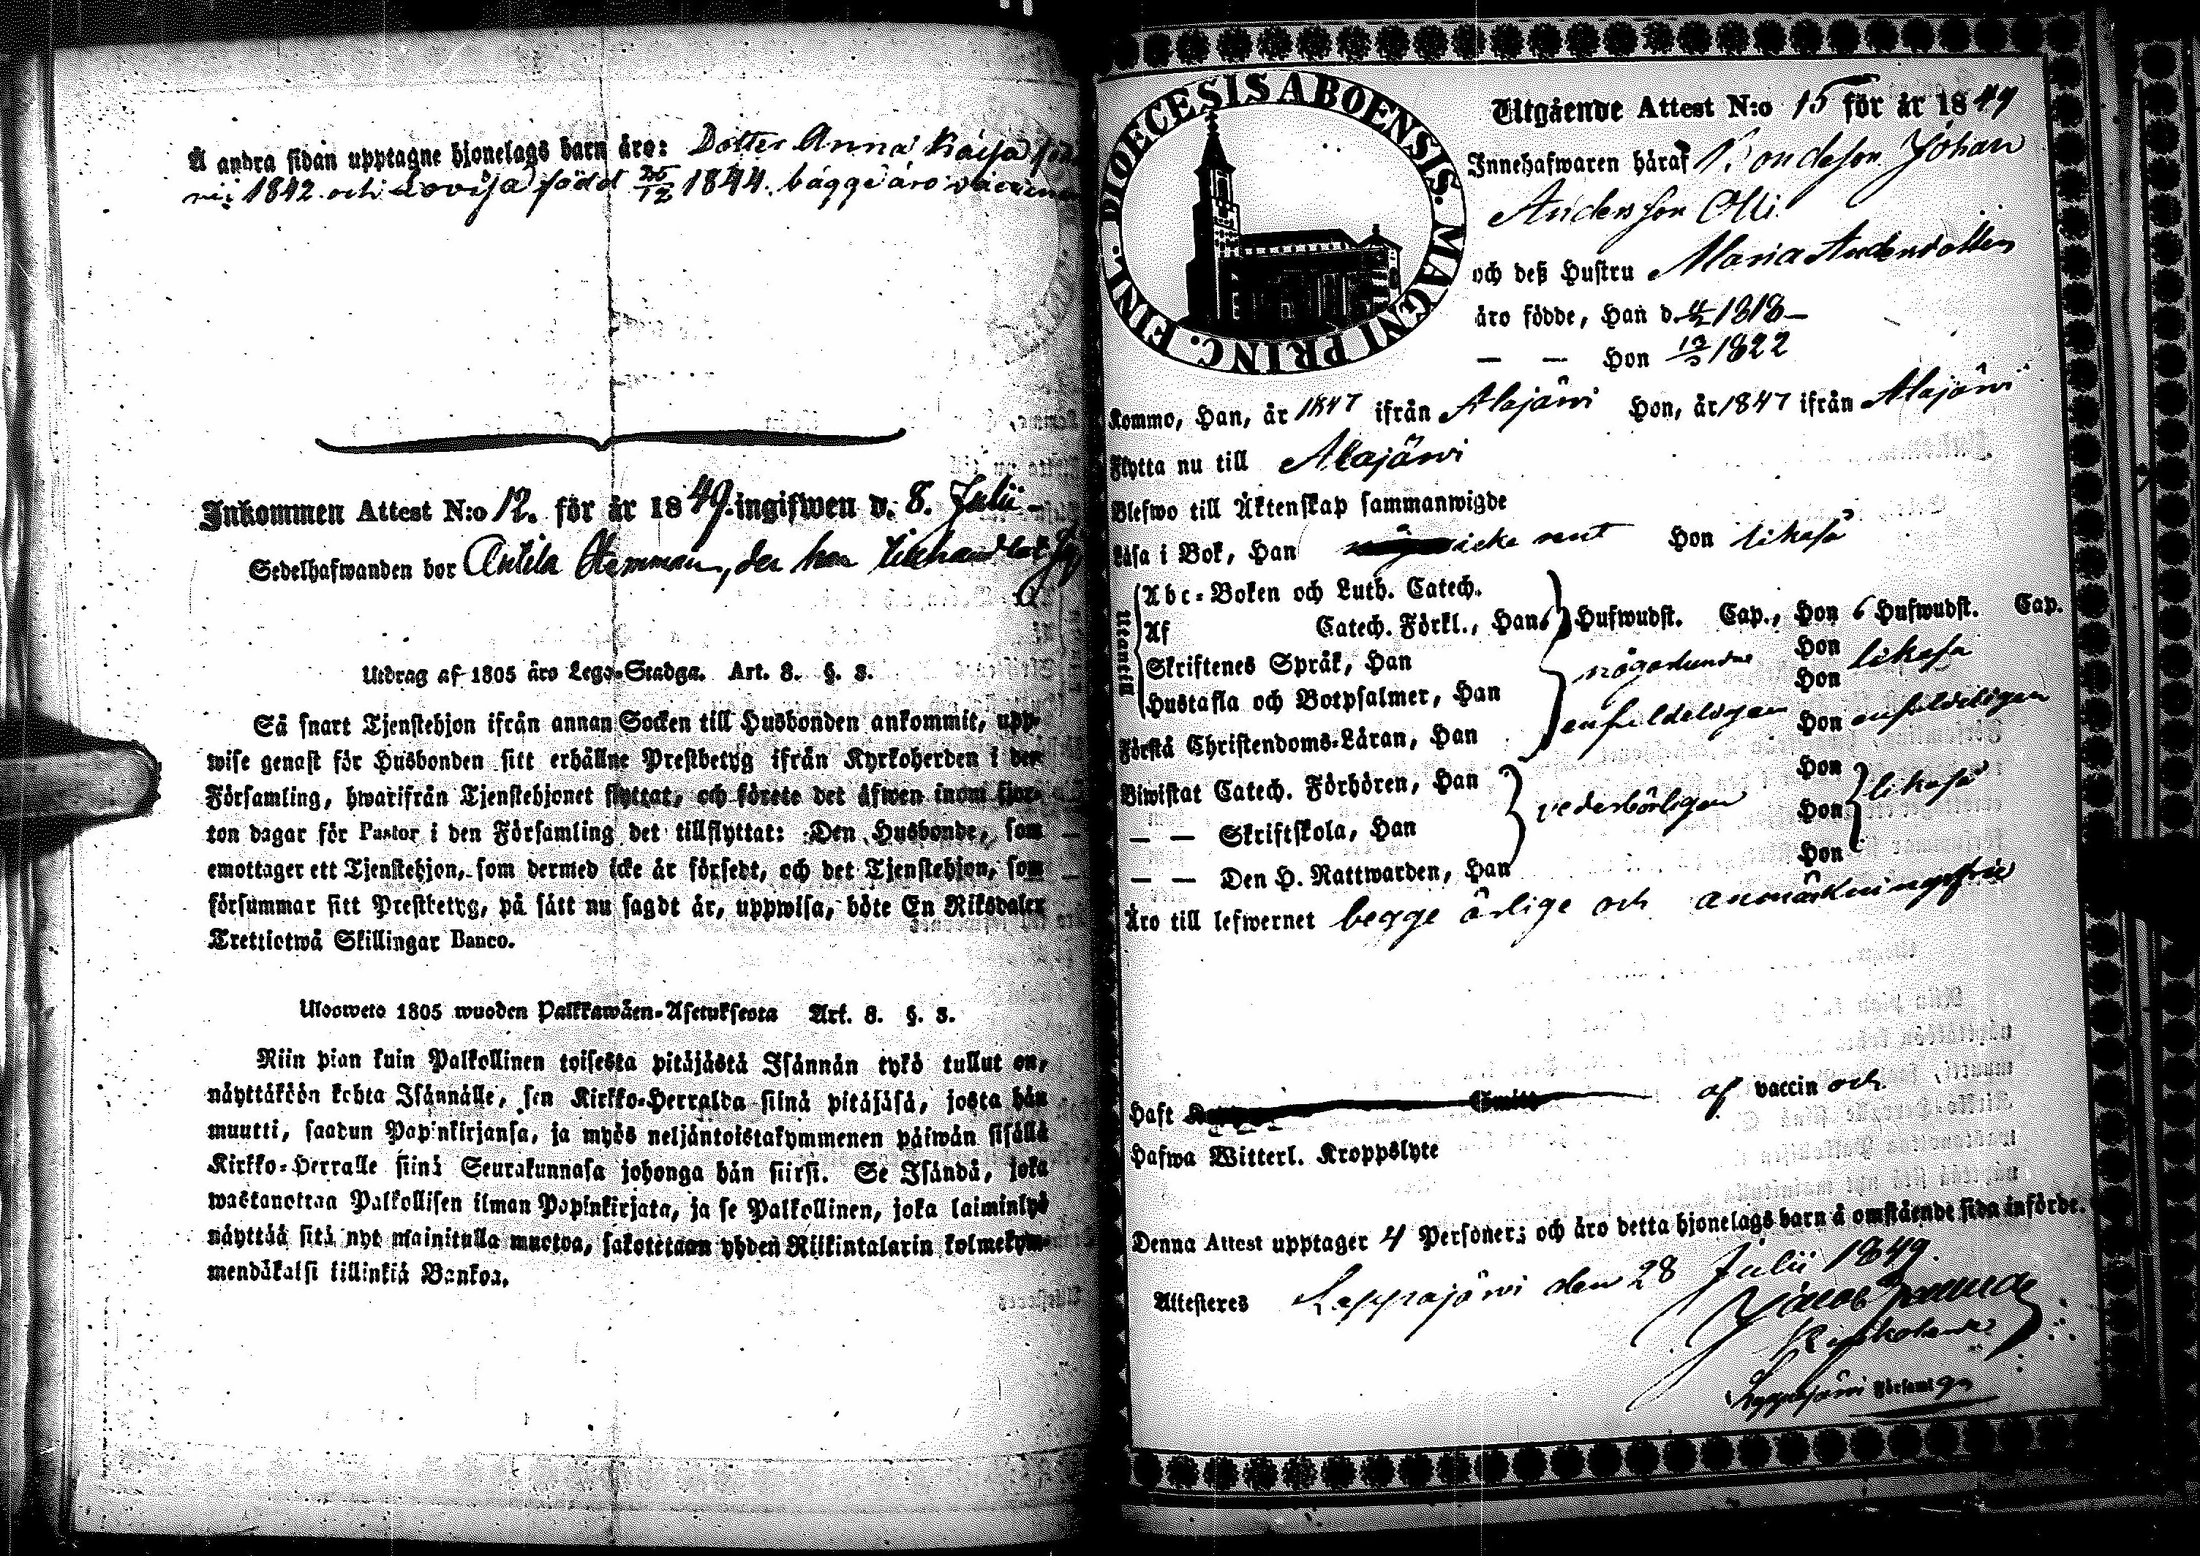 Å andra sidan upptagne hjonelags barn äro: Dotter Anna Kaisa
1842. och Lovisa född 26/12 1844. bägge äro
Inkommen Attest N:o 12. för år 1849. ingifwen d. 8. Julii
Sedelhafwanden bor Antila Hemman, der han
Utdrag af 1805 års Lego-Stadga. Art. 8. §. 3.
Så snart Tjenstehjon ifrån annan Socken till Husbonden ankommit, upp-
wise genast för Husbonden sitt erhållne Prestbetyg ifrån Kyrkoherden i den
Församling, hwarifrån Tjenstehjonet flyttat, och förete det äfwen inom fjor-
ton dagar för Pastor i den Församling det tillflyttat: Den Husbonde, som
emottager ett Tjenstehjon, som dermed icke är försedt, och det Tjenstehjon, som
försummar sitt Prestbetyg, på sätt nu sagdt är, uppwisa, böte En Riksdaler
Trettiotwå Skillingar Banco.
Ulosweto 1805 wuoden Palkkawäen-Asetuksesta Art. 8. §. 3.
Niin pian kuin Palkollinen toisesta pitäjästä Isännän tykö tullut on,
näyttäköön kohta Isännälle, sen Kirkko-Herralda siinä pitäjäsä, josta hän
muutti, saadun Papinkirjansa, ja myös neljäntoistakymmenen päiwän sisällä
Kirkko-Herralle siinä Seurakunnasa johonga hän siirsi. Se Isändä, joka
wastanottaa Palkollisen ilman Papinkirjata, ja se Palkollinen, joka laiminlyö
näyttää sitä nyt mainitulla muotoa, sakotetaan yhden Riikintalarin kolmekym-
mendäkaksi killinkiä Bankoa.
DIOECESIS ABOENSIS. MAGNI PRINC. FINL.
Utgående Attest N:o 15 för år 1849
Innehafwaren häraf Bondeson Johan
Andersson Olli
och deß Hustru Maria Andersdotter
äro födde, Han d. 4/2 1818
— — Hon 12/3 1822
Kommo, Han, år 1847 ifrån Alajärwi Hon, år 1847 ifrån Alajärwi
Flytta nu till Alajärwi
Blefwo till Äktenskap sammanwigde
Läsa i Bok, Han icke rent Hon likaså
Utantill
Abc-Boken och Luth. Catech.
Af Catech. Förkl., Han 6 Hufwudst. Cap., Hon 6 Hufwudst. Cap.
Skriftenes Språk, Han någorlunda Hon likaså
Hustafla och Botpsalmer, Han Hon
Förstå Christendoms-Läran, Han enfaldeligen Hon enfaldeligen
Biwistat Catech. Förhören, Han Hon
— — Skriftskola, Han vederbörligen Hon likaså
— — Den H. Nattwarden, Han Hon
Äro till lefwernet begge ärlige och anmärkningsfrie
Haft af vaccin och
Hafwa Witterl. Kroppslyte
Denna Attest upptager 4 Personer; och äro detta hjonelags barn å omstående sida införde.
Attesteres Lappajärwi den 28 Julii 1849.
Jacob
Lappajärwi Församlgs